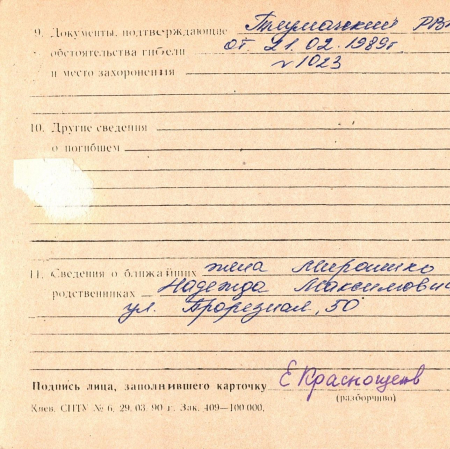 9. Документы, подтверждающие Тлумачский РВ
обстоятельства гибели от 21.02.1989г
и место захоронения № 1023
10. Другие сведения
о погибшем
11. Сведения о ближайших жена
родственниках Надежда Максимович
ул. Прорезная, 50
Подпись лица, заполнившего карточку Е Краснощеков
(разборчиво)
Киев. СПТУ № 6, 29. 03. 90 г. Зак. 409—100 000.